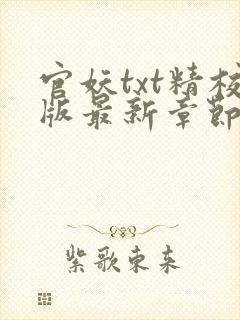 官妖txt精校
版最新章節
紫歌东来